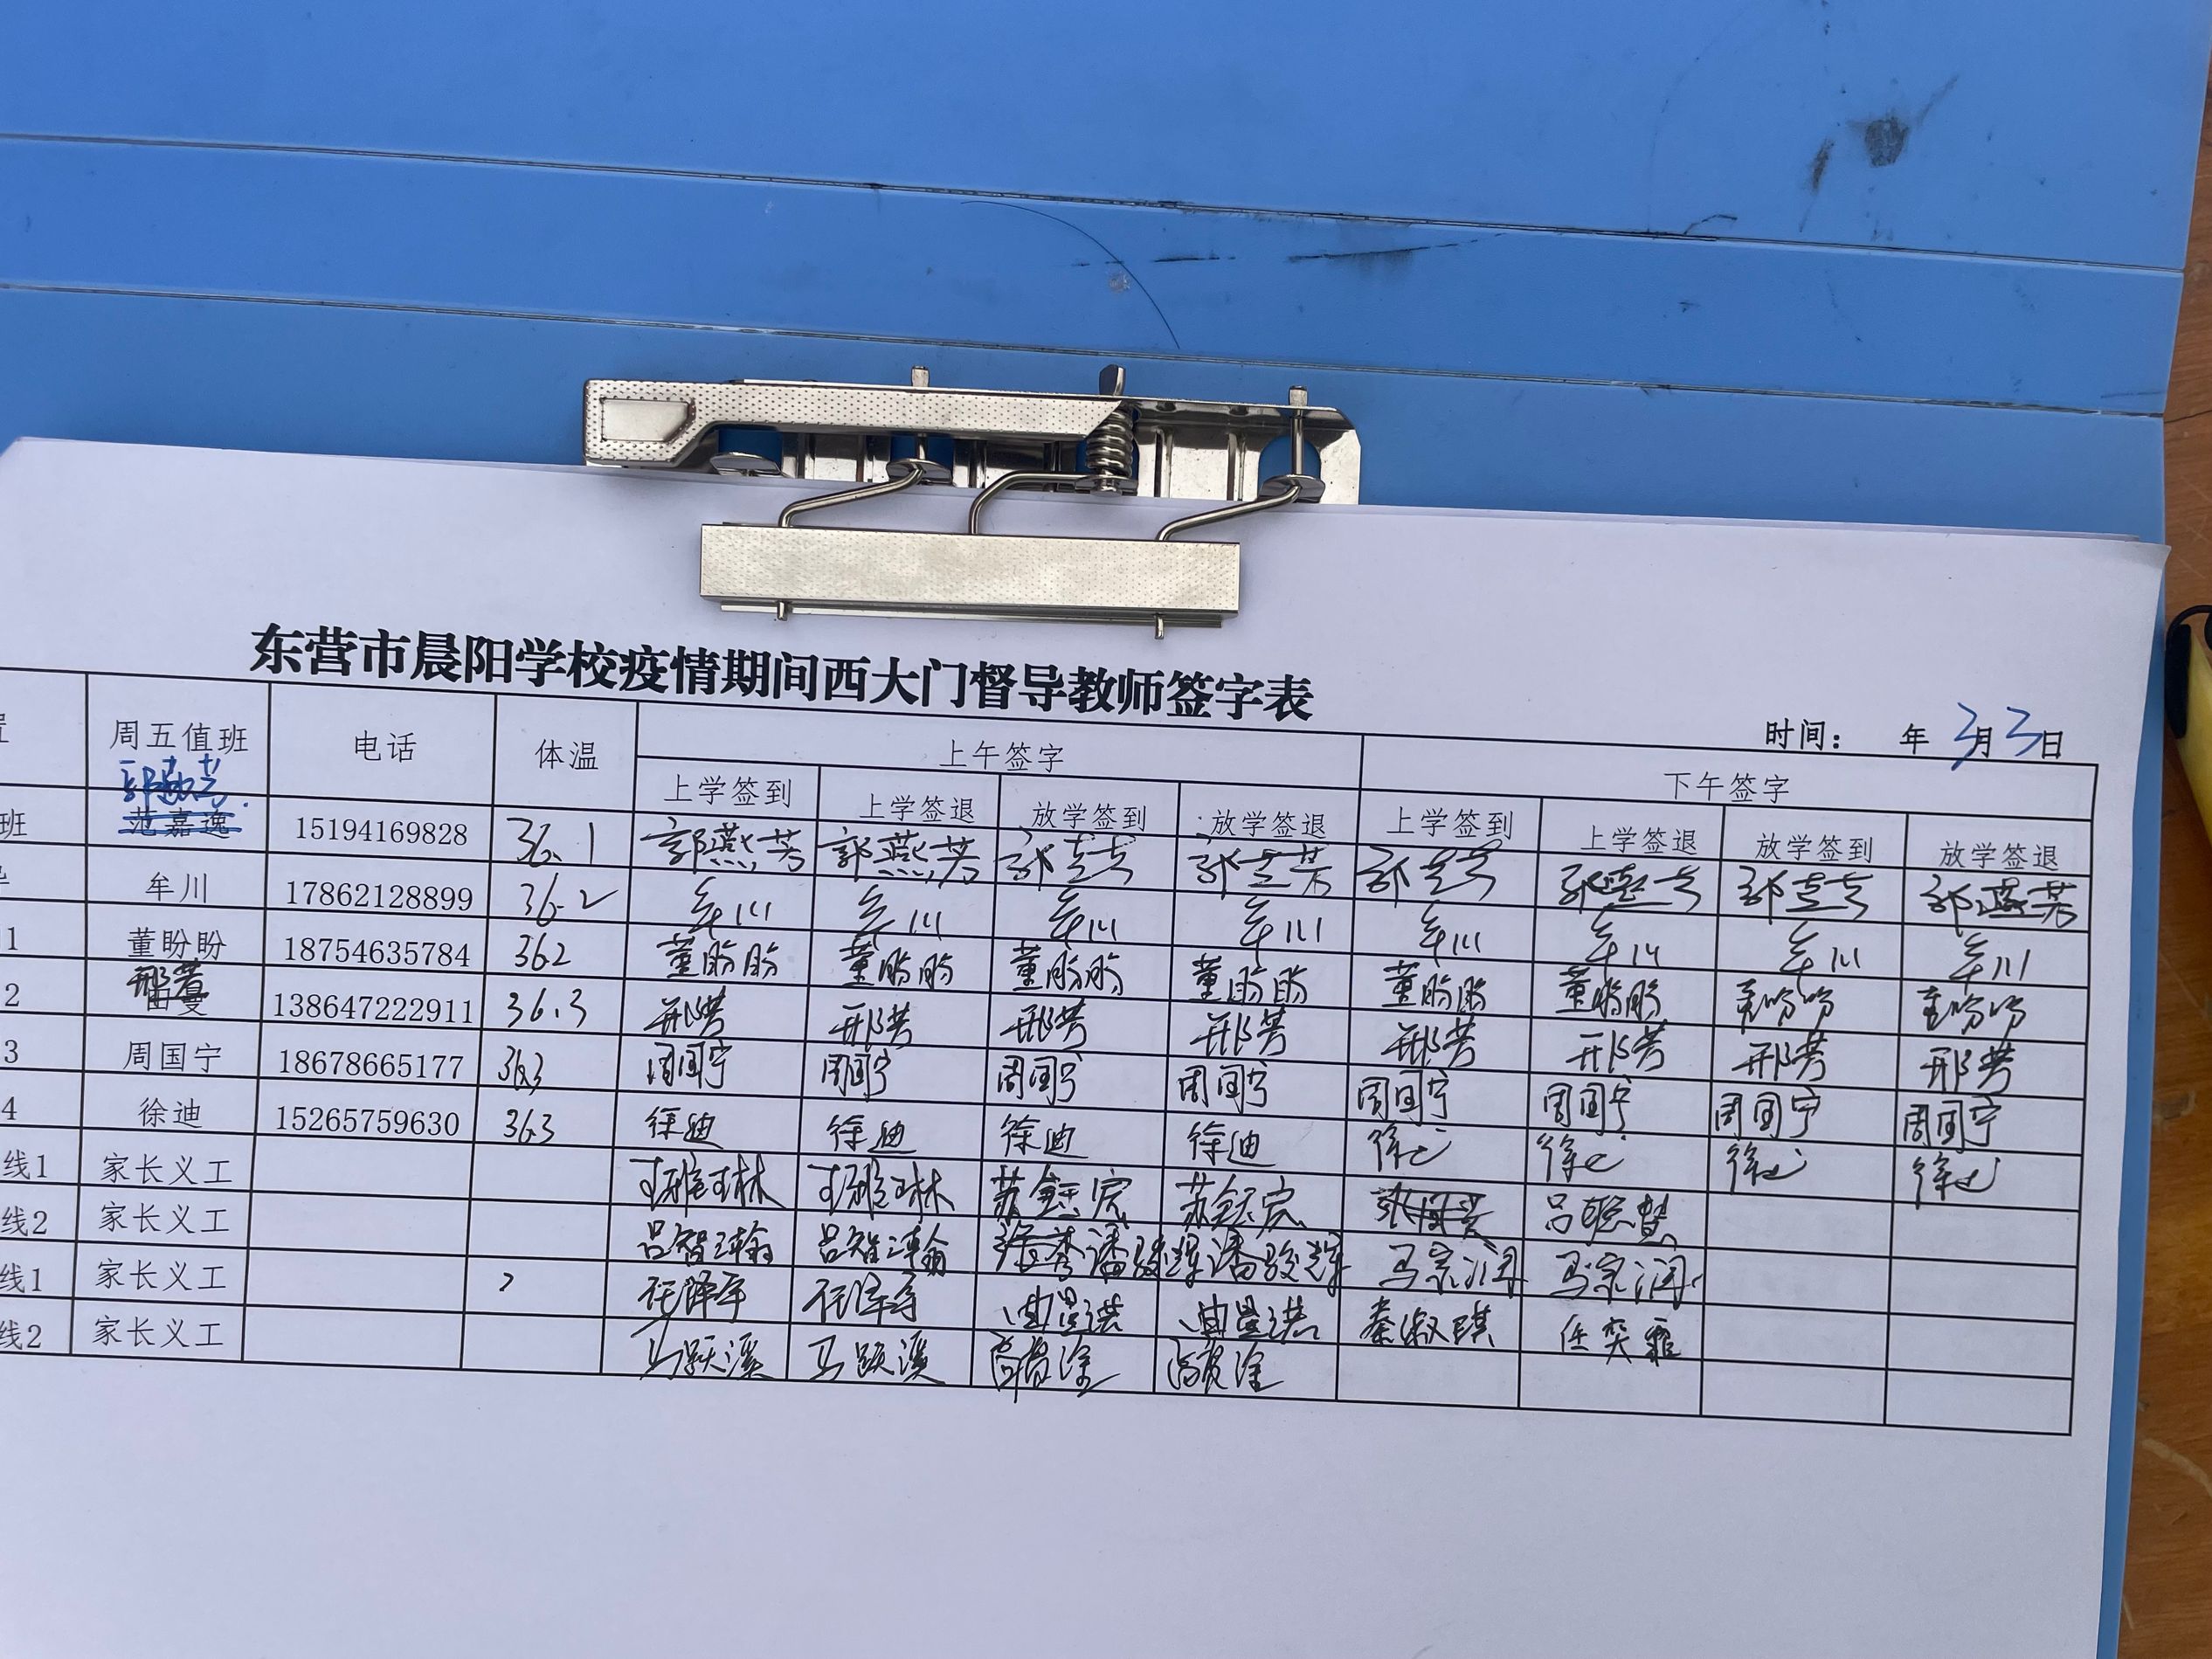 东营市晨阳学校疫情期间西大门督导教师签字表
时间： 年 3月3日
周五值班 电话 体温 上午签字 下午签字
上学签到 上学签退 放学签到 放学签退 上学签到 上学签退 放学签到 放学签退
郭燕芳
班 范嘉逸 15194169828 36.1 郭燕芳 郭燕芳 郭燕芳 郭燕芳 郭燕芳 郭燕芳 郭燕芳 郭燕芳
牟川 17862128899 36.2 牟川 牟川 牟川 牟川 牟川 牟川 牟川 牟川
1 董盼盼 18754635784 362 董盼盼 董盼盼 董盼盼 董盼盼 董盼盼 董盼盼 董盼盼 董盼盼
邢芳
2 138647222911 36.3 邢芳 邢芳 邢芳 邢芳 邢芳 邢芳 邢芳 邢芳
3 周国宁 18678665177 363 周国宁 周国宁 周国宁 周国宁 周国宁 周国宁 周国宁 周国宁
4 徐迪 15265759630 363 徐迪 徐迪 徐迪 徐迪 徐迪 徐迪 徐迪 徐迪
线1 家长义工 王雅琳 王雅琳 苏钰宸 苏钰宸 吕聪慧
线2 家长义工 吕智瀚 吕智瀚 潘骏辉 潘骏辉 马宗润 马宗润
线1 家长义工 任泽宇 任泽宇 曲昱诺 曲昱诺 秦淑琪 任奕霏
线2 家长义工 马跃溪 马跃溪